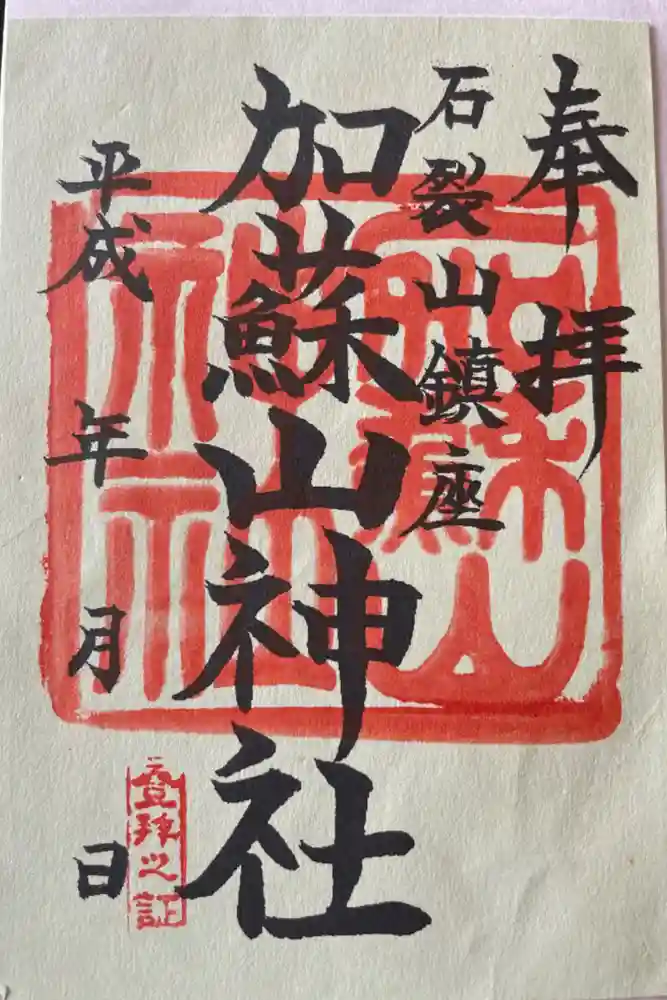 奉拝
石裂山鎮座
加蘇山神社
平成 年 月 日
加蘇山神社
登拝之証